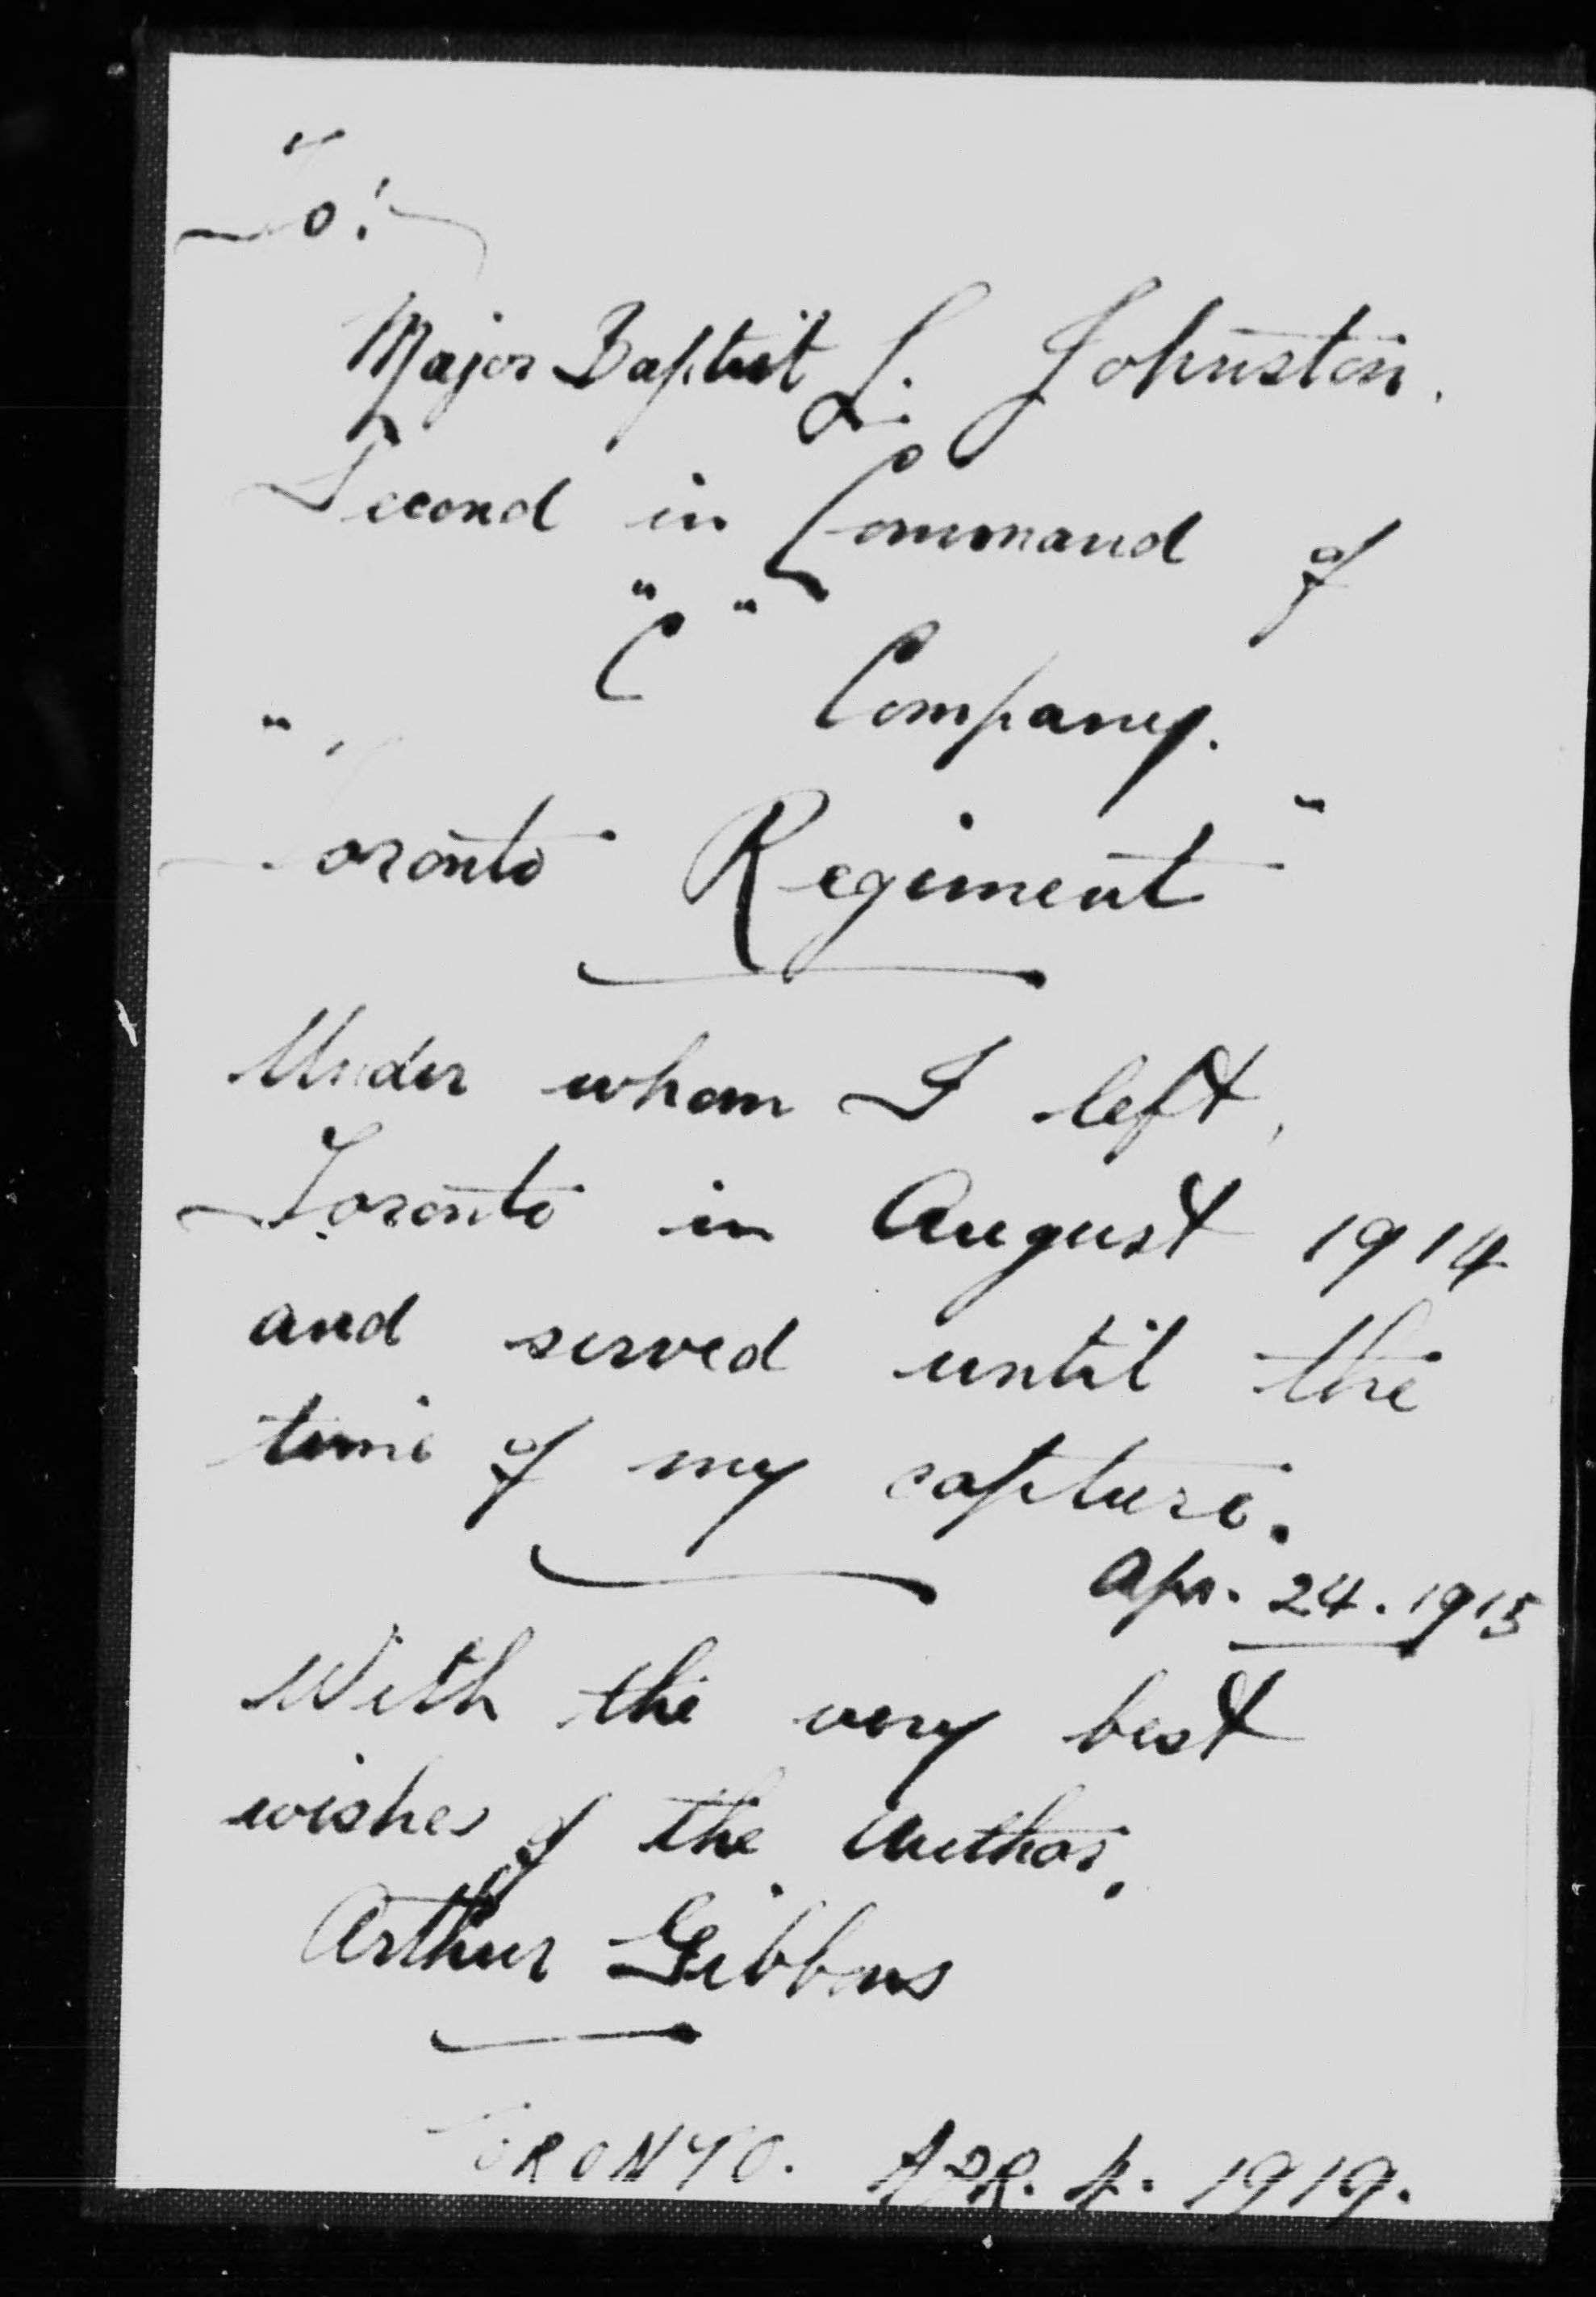 To:
Major Baptist L. Johnston.
Second in Command of
"C" Company.
"Toronto Regiment"
Under whom I left,
Toronto in August 1914
and served until the
time of my capture.
Apr. 24. 1915
With the very best
wishes of the Author,
Arthur Gibbons
TORONTO. APR. 4. 1919.